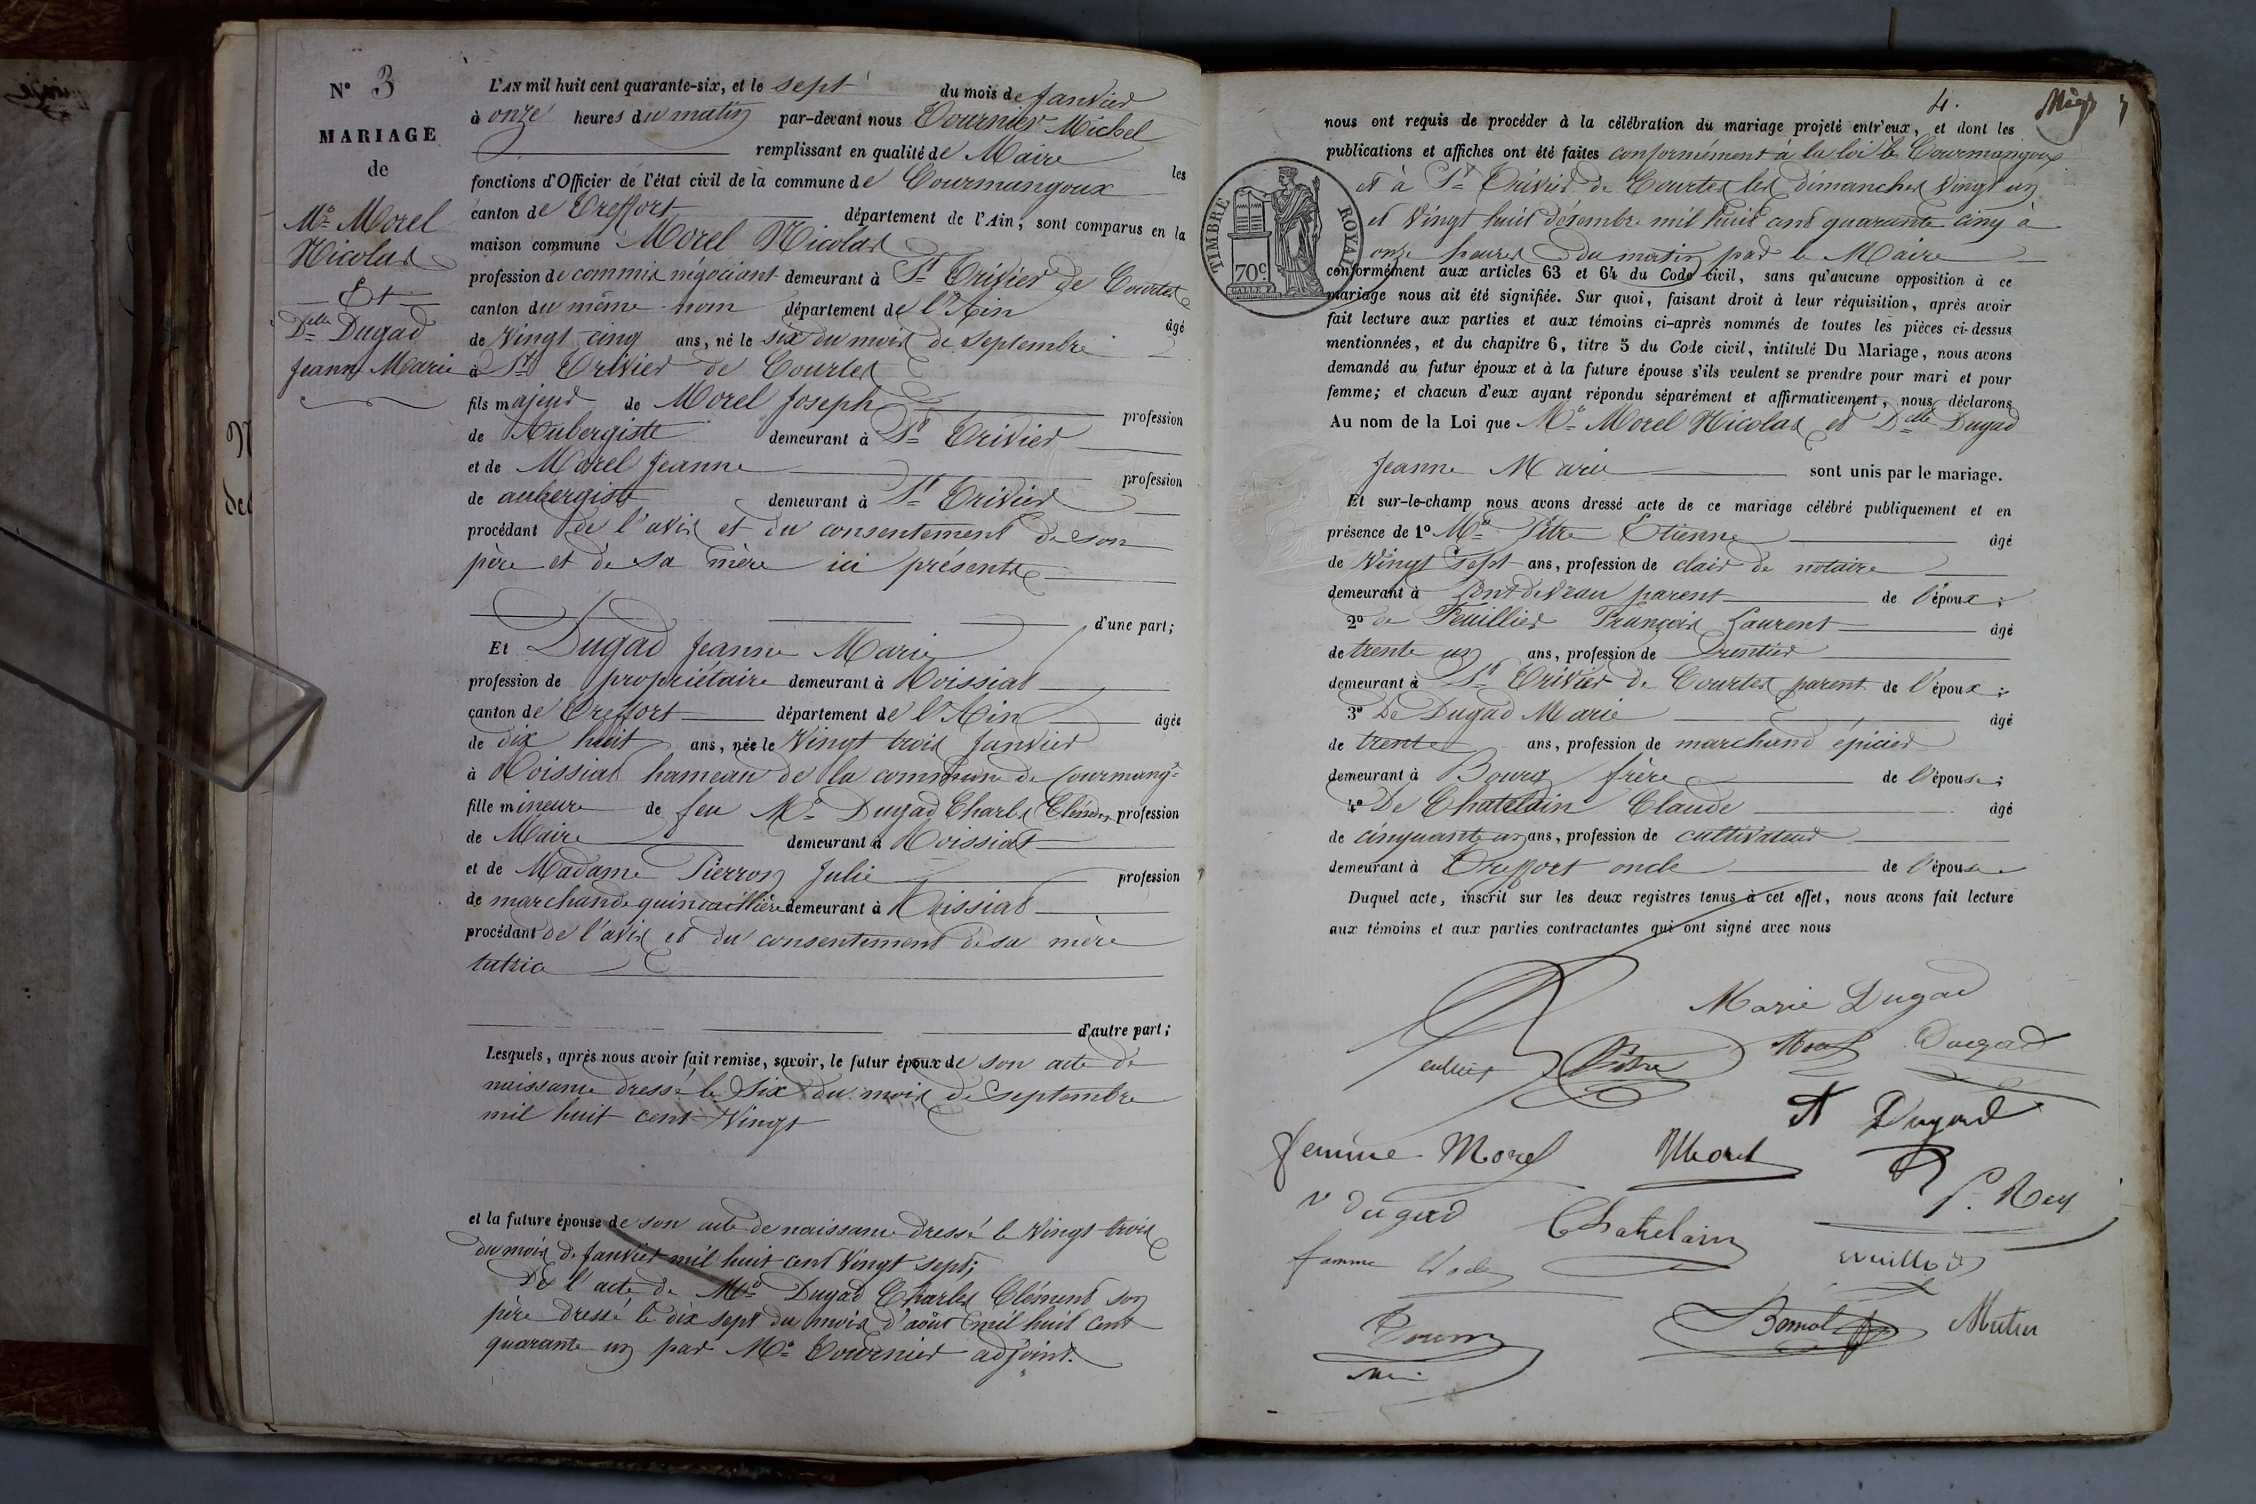 N° 3
MARIAGE
de
Mr. Morel
Nicolas
Et
Dlle Dugad
Jeanne Marie
L'AN mil huit cent quarante-six, et le sept du mois de Janvier
à onze heures du matin par-devant nous Tournier Michel
remplissant en qualité de Maire les
fonctions d'Officier de l'état civil de la commune de Courmangoux
canton de Treffort département de l'Ain, sont comparus en la
maison commune Morel Nicolas
profession de commis négociant demeurant à St Trivier de Courtes
canton du même nom département de l'Ain âgé
de Vingt cinq ans, né le six du mois de Septembre
à St Trivier de Courtes
fils majeur de Morel Joseph profession
de Aubergiste demeurant à St Trivier
et de Morel Jeanne profession
de aubergiste demeurant à St Trivier
procédant de l'avis et du consentement de son
père et de sa mère ici présents
d'une part;
Et Dugad Jeanne Marie
profession de propriétaire demeurant à Roissiat
canton de Treffort département de l'Ain âgée
de dix huit ans, née le Vingt trois Janvier
à Roissiat hameau de la commune de Courmangx
fille mineure de feu Mr Dugad Charles Clément profession
de Maire demeurant à Roissiat
et de Madame Pierron Julie profession
de marchande quincaillière demeurant à Roissiat
procédant de l'avis et du consentement de sa mère
tutrice
d'autre part;
Lesquels, après nous avoir fait remise, savoir, le futur époux de son acte de
naissance dressé le Six du mois de Septembre
mil huit cent Vingt
et la future épouse de son acte de naissance dressé le Vingt trois
du mois de Janvier mil huit cent Vingt sept;
De l'acte de Mr Dugad Charles Clément son
père dressé le dix sept du mois d'août mil huit cent
quarante un par Mr Tournier adjoint.
4.
nous ont requis de procéder à la célébration du mariage projeté entr'eux, et dont les
publications et affiches ont été faites conformément à la loi à Courmangoux
et à St Trivier de Courtes les dimanches Vingt un
et Vingt huit Décembre mil huit cent quarante cinq à
onze heures du matin par le Maire
TIMBRE ROYAL
70c.
conformément aux articles 63 et 64 du Code civil, sans qu'aucune opposition à ce
mariage nous ait été signifiée. Sur quoi, faisant droit à leur réquisition, après avoir
fait lecture aux parties et aux témoins ci-après nommés de toutes les pièces ci-dessus
mentionnées, et du chapitre 6, titre 5 du Code civil, intitulé Du Mariage, nous avons
demandé au futur époux et à la future épouse s'ils veulent se prendre pour mari et pour
femme; et chacun d'eux ayant répondu séparément et affirmativement, nous déclarons
Au nom de la Loi que Mr Morel Nicolas et Dlle Dugad
Jeanne Marie sont unis par le mariage.
Et sur-le-champ nous avons dressé acte de ce mariage célébré publiquement et en
présence de 1° Mr Pitre Etienne âgé
de Vingt Sept ans, profession de clair de notaire
demeurant à Pont de Veau parent de l'époux;
2° de Feuillier François Laurent âgé
de trente un ans, profession de rentier
demeurant à St Trivier de Courtes parent de l'époux;
3° De Dugad Marie âgé
de trente ans, profession de marchand épicier
demeurant à Bourg frère de l'épouse;
4° De Chatelain Claude âgé
de cinquante un ans, profession de cultivateur
demeurant à Treffort oncle de l'épouse
Duquel acte, inscrit sur les deux registres tenus à cet effet, nous avons fait lecture
aux témoins et aux parties contractantes qui ont signé avec nous
Marie Dugad
Pitre Morel Dugad
Dugad
femme Morel Morel
P. Rey
v Dugad Chatelain
femme
Tourn